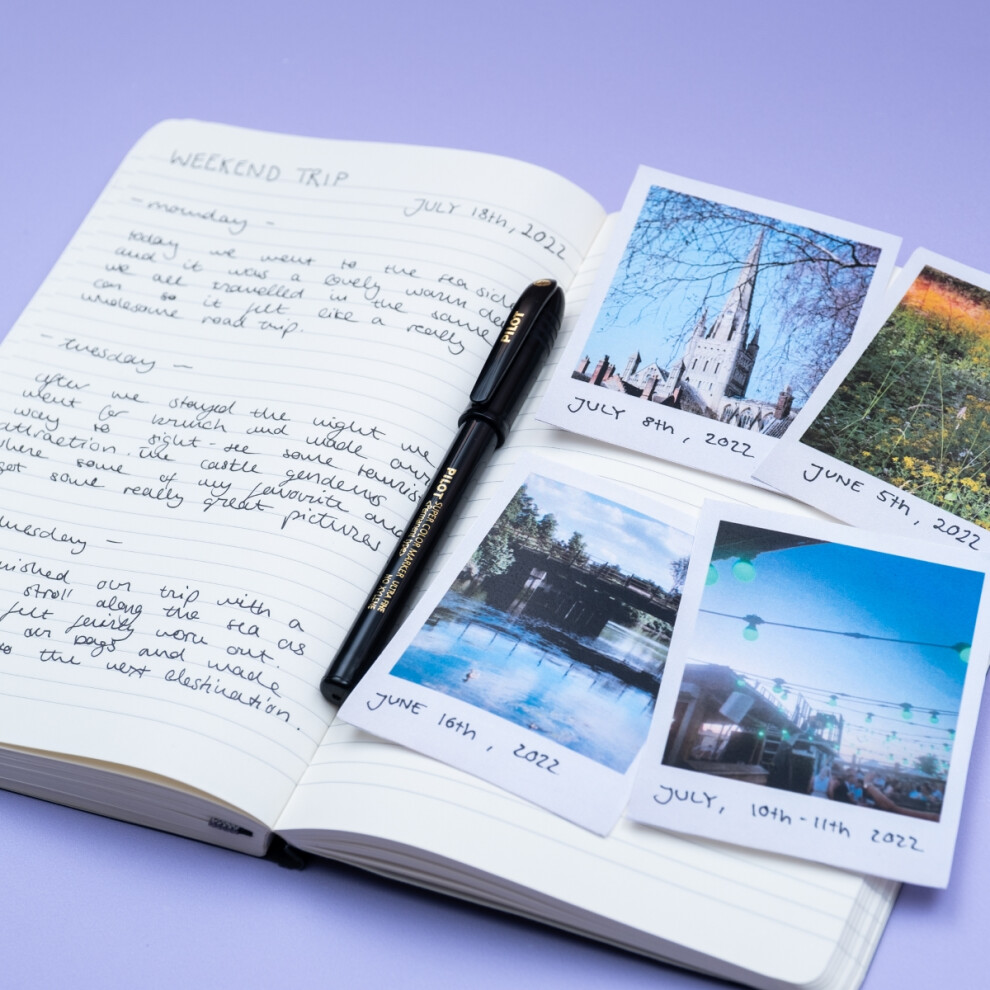 WEEKEND TRIP
JULY 18th, 2022
- monday -
today we went to the sea side
and it was a lovely warm day
we all travelled in the same
car so it felt like a really
wholesome road trip.
- tuesday -
after we stayed the night we
went for brunch and made our
way to sight-see some tourist
attraction. the castle gardens
where some of my favourite and
got some really great pictures
- 
our trip with a
stroll along the sea as
felt worn out.
our bags and made
to the next destination.
PILOT
PILOT SUPER COLOR MARKER ULTRA FINE
JULY 8th, 2022
JUNE 5th, 2022
JUNE 16th, 2022
JULY, 10th-11th 2022